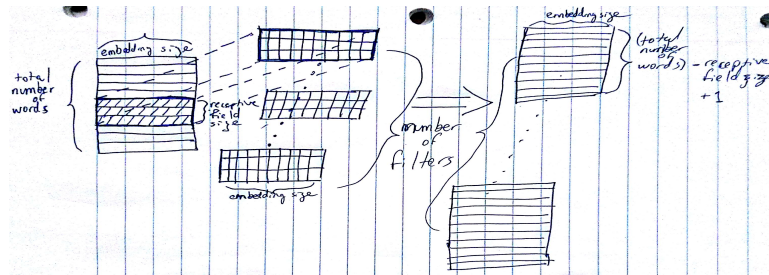 embedding size
total
number
of
words
receptive
field
size
embedding size
number
of
filters
embedding size
(total
number
of
words) - receptive
field size
+1